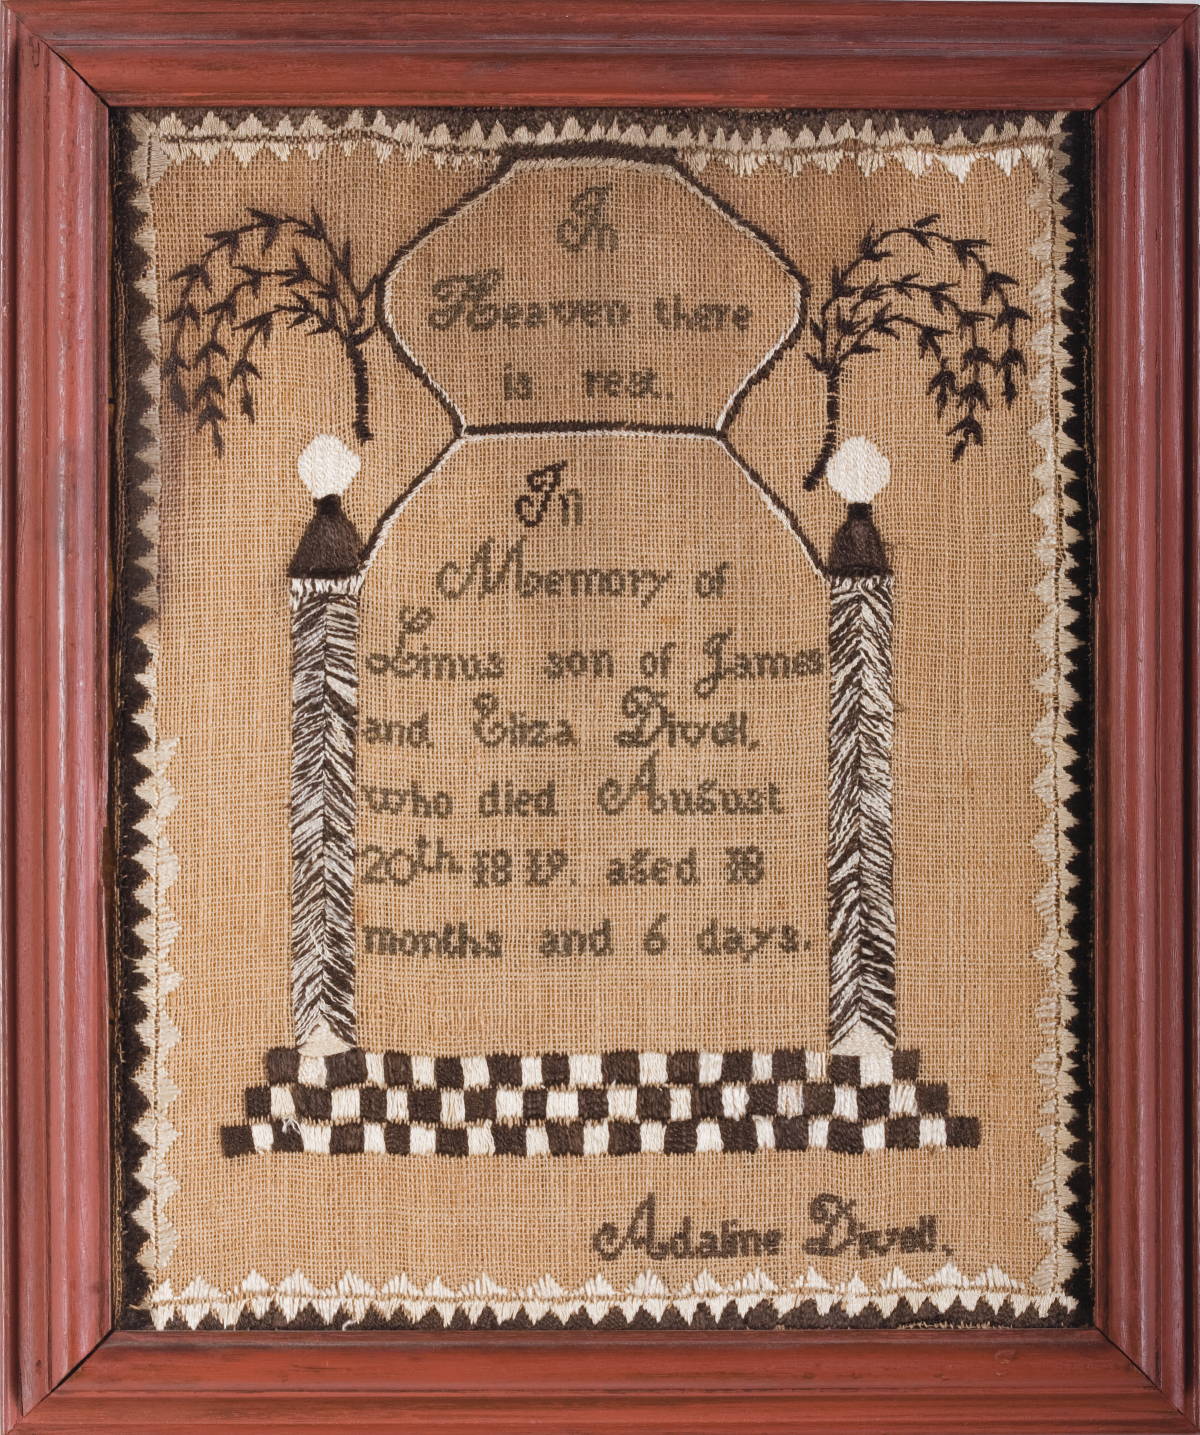 In
Heaven there
is rest.
In
Memory of
Linus son of James
and Eliza Divoll,
who died August
20th 1819. aged 18
months and 6 days.
Adaline Divoll.